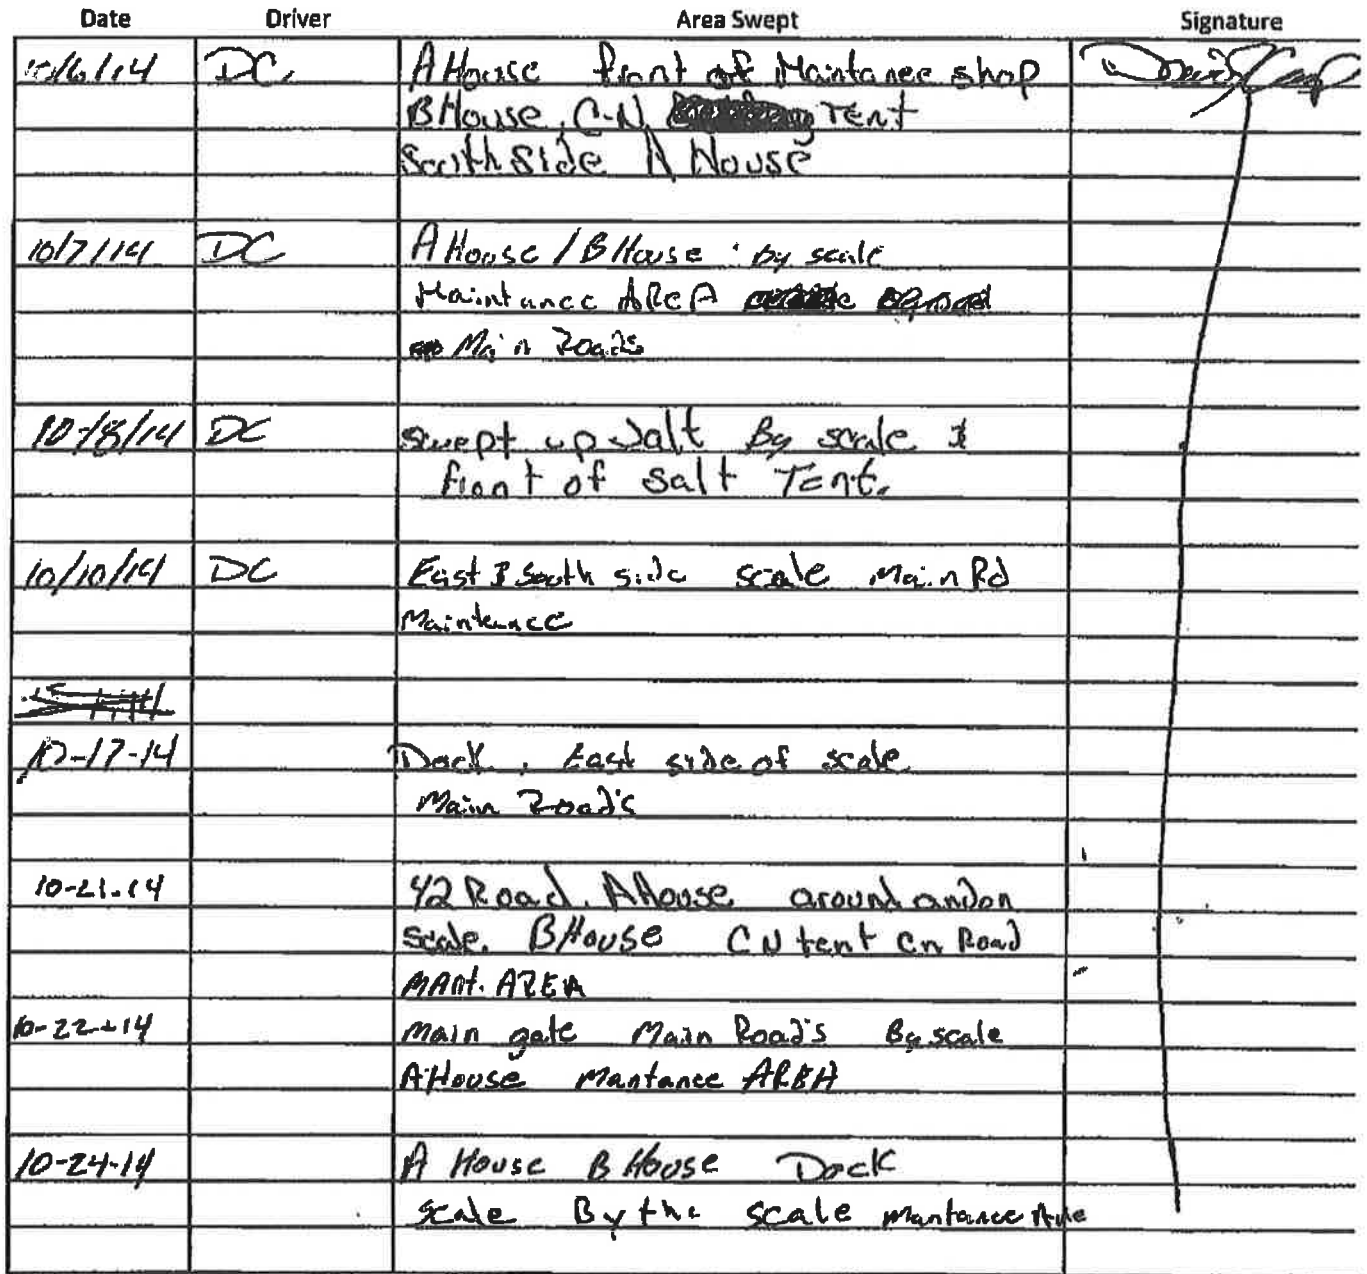 Date Driver Area Swept Signature
10/6/14 DC A House front of Maintance shop
B House, C-N Tent
South Side A House
10/7/14 DC A House / B House : by scale
Maintance AReA
Main Roads
10/8/14 DC swept up Salt By scale &
front of Salt Tent.
10/10/14 DC East & South side scale Main Rd
Maintenace
10-17-14 Dock, East side of scale
Main Road's
10-21-14 42 Road, A House around and on
scale, B House CN tent Cn Road
MAnt. AREA
10-22-14 Main gate Main Road's By scale
A House Mantance AREA
10-24-14 A House B House Dock
scale By the scale Mantance